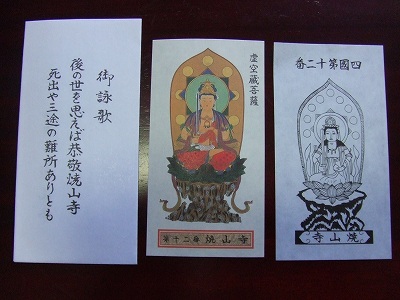 御詠歌
後の世を思えば恭敬焼山寺
死出や三途の難所ありとも
虚空蔵菩薩
第十二番 焼山寺
四國第十二番
寺山焼